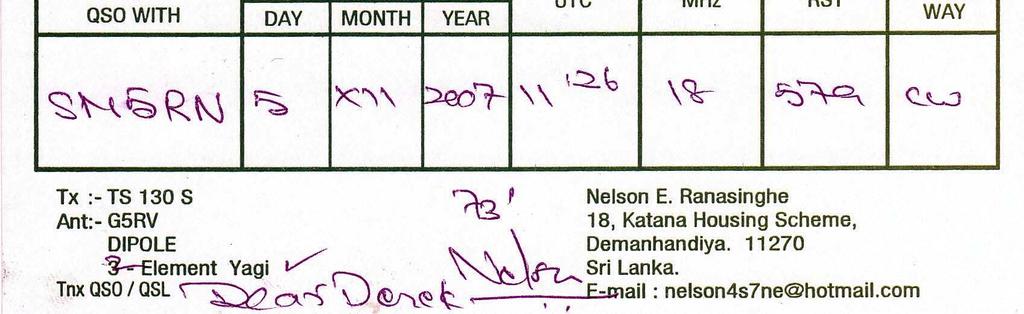 QSO WITH DAY MONTH YEAR UTC MHz RST WAY
SM5RN 5 XII 2007 11 26 18 579 CW
Tx :- TS 130 S
Ant:- G5RV
DIPOLE
3 - Element Yagi ✓
Tnx QSO / QSL Dear Derek
73'
Nelson
Nelson E. Ranasinghe
18, Katana Housing Scheme,
Demanhandiya. 11270
Sri Lanka.
E-mail : nelson4s7ne@hotmail.com